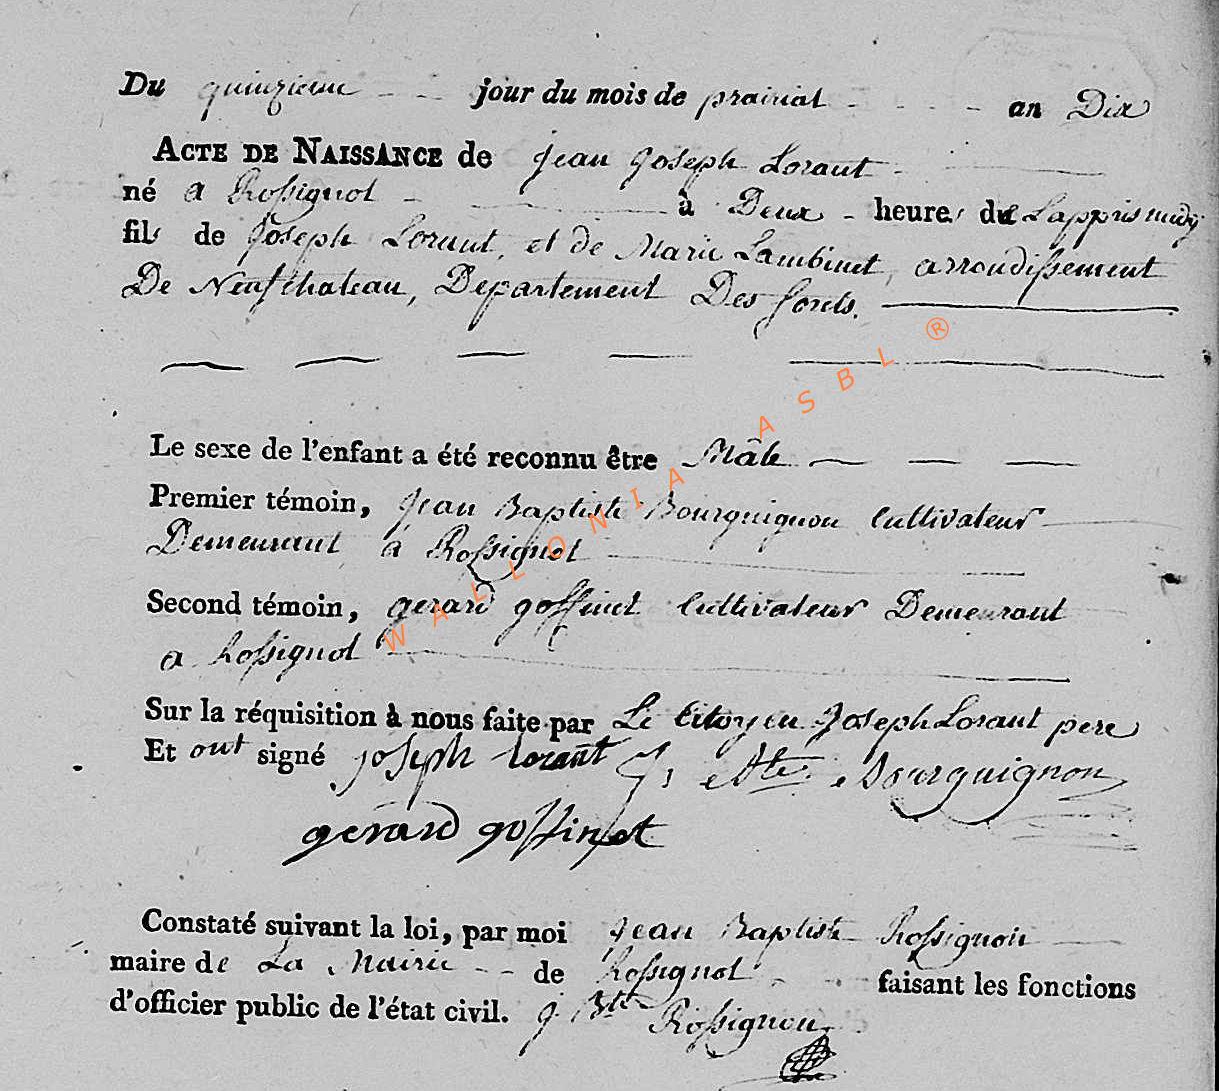 Du quinzieme jour du mois de prairial an Dix
ACTE DE NAISSANCE de Jean Joseph Loraut
né a Rossignol à Deux heures de Lapprismidÿ
fils de Joseph Loraut, et de Marie Lambinet, arrondissement
De Neufchateau, Departement Des forets.
Le sexe de l'enfant a été reconnu être Mâle
Premier témoin, Jean Baptiste Bourguignon Cultivateur
Demeurant a Rossignol
Second témoin, gerard goffinet Cultivateur Demeurant
a Rossignol
Sur la réquisition à nous faite par Le Citoyen Joseph Loraut pere
Et ont signé joseph lorant J Bte Bourguignon
gerard goffinet
Constaté suivant la loi, par moi Jean Baptiste Rossignon
maire de La Mairie de Rossignol faisant les fonctions
d'officier public de l'état civil. J Bte Rossignon
WALLONIA ASBL ®